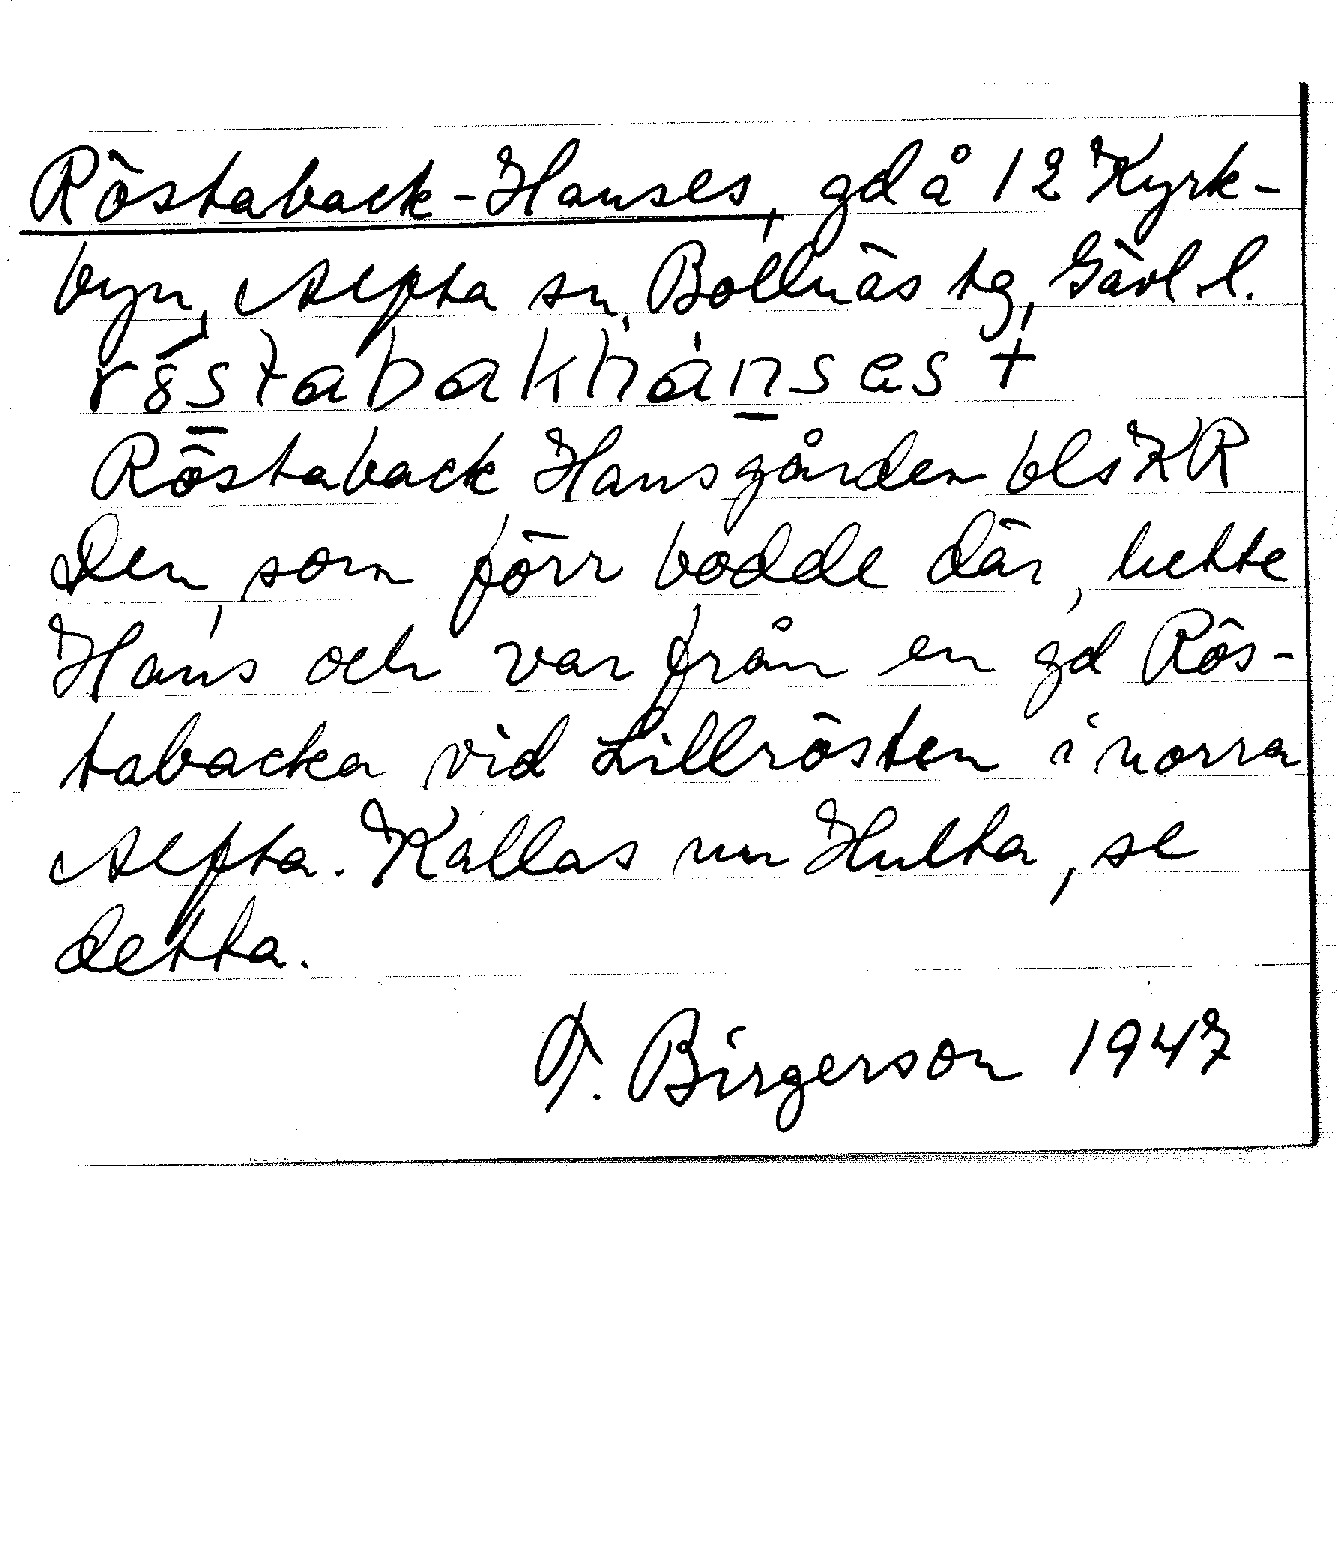 Röstaback-Hanses, gd å 12 Kyrk-
byn, Alfta sn, Bollnäs tg, Gävl. l.
röstabakhánses +
Röstaback Hansgården bls KR
Den, som förr bodde där, hette
Hans och var från en gd Rös-
tabacka vid Lillrösten i norra
Alfta. Kallas nu Hulta, se
detta.
T. Birgerson 1947